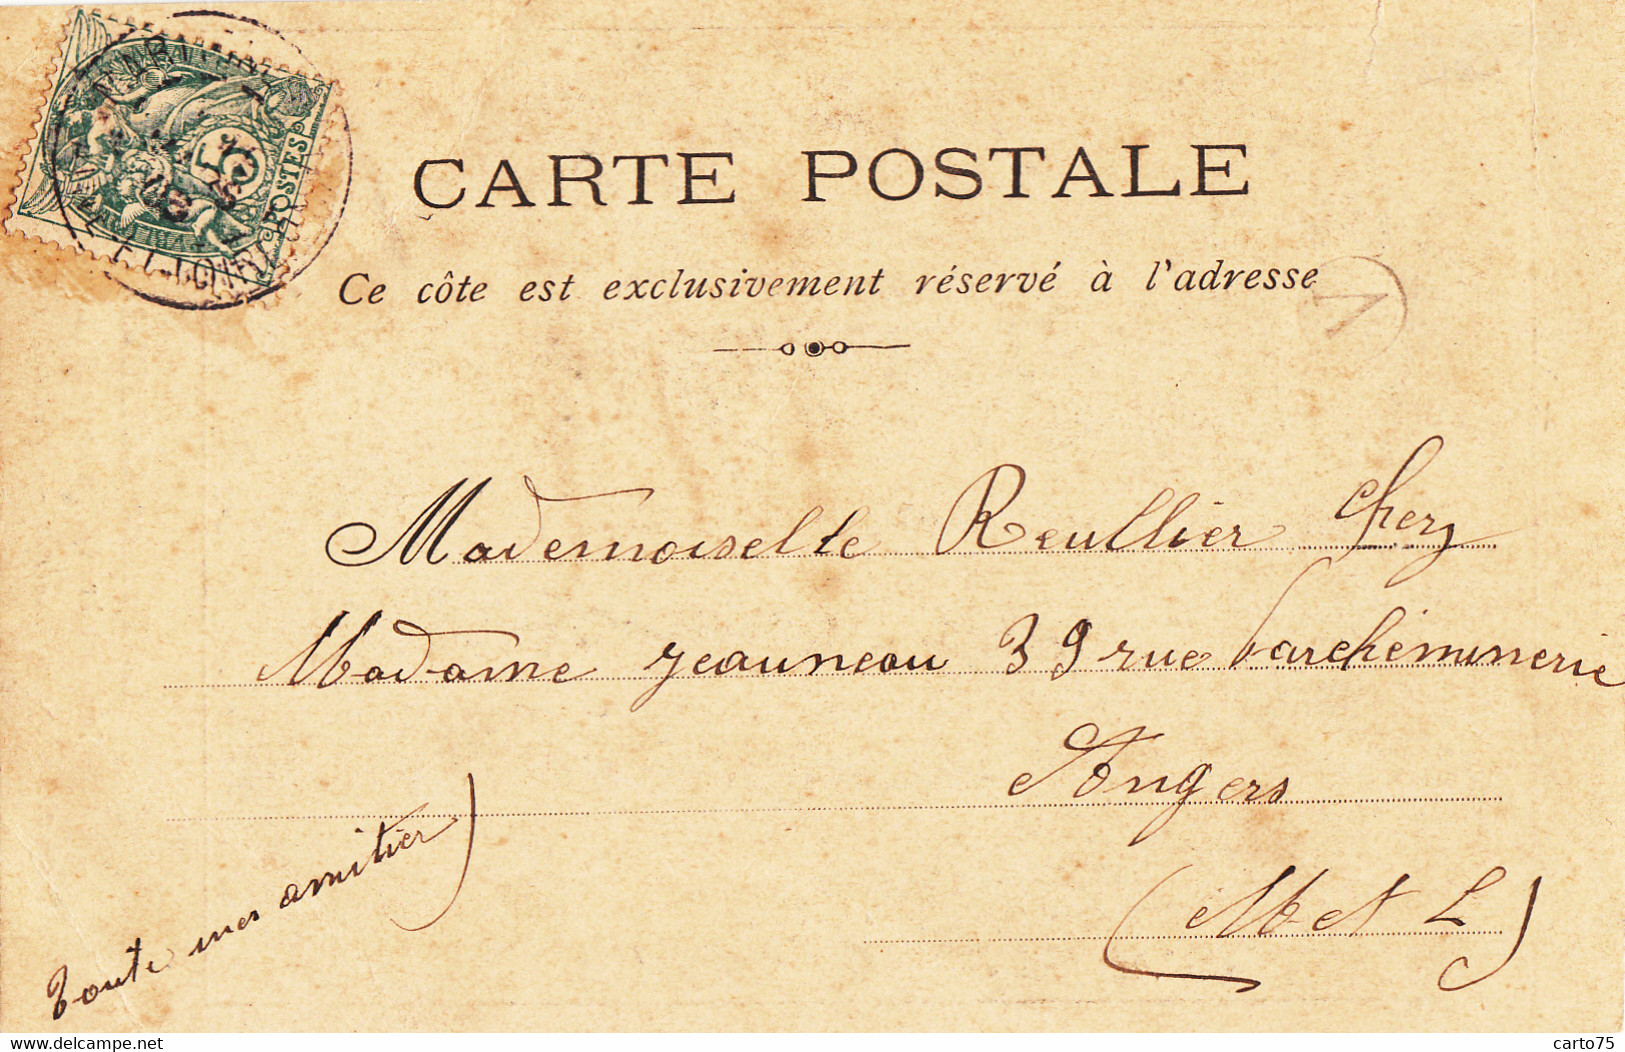 5
POSTES
ET-LOIRE
CARTE POSTALE
Ce côte est exclusivement réservé à l'adresse
Mademoiselle Reullier Cherz
Madame Jeauneau 39 rue Parcheminerie
Angers
(M et L)
Toute mes amitier
carto75